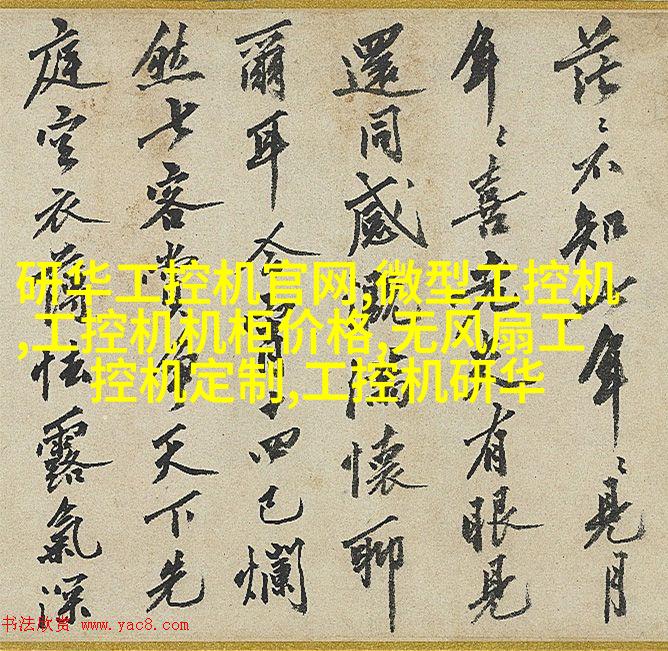 茫〻不知年〻見月
年〻喜有眼見
還同感慨滿懷聊
爾耳今四已爛
然七客賞天下先
庭空衣薄怯露氣深
研华工控机官网,微型工控机
,工控机机柜价格,无风扇工
控机定制,工控机研华
书法欣赏 www.yac8.com